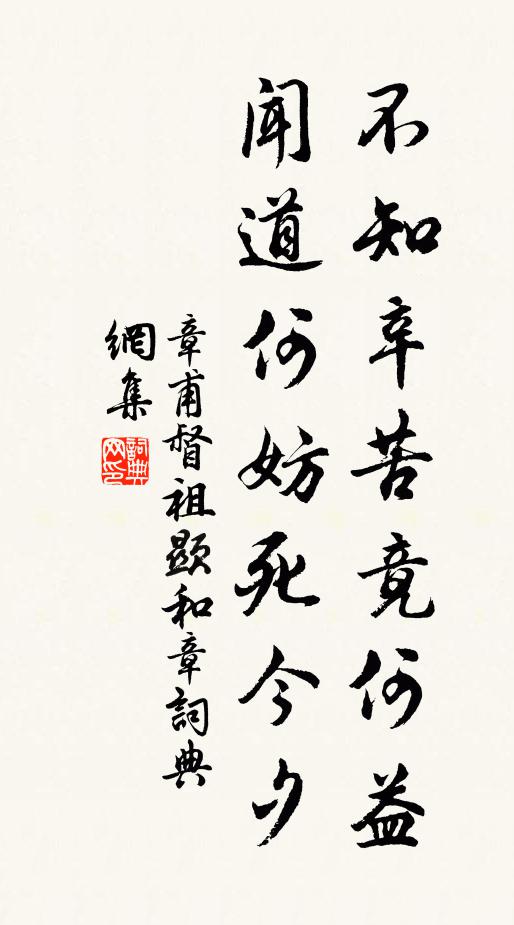 不知辛苦竟何益
聞道何妨死今夕
章甫督祖顯和章詞典
網集
詞典
网印